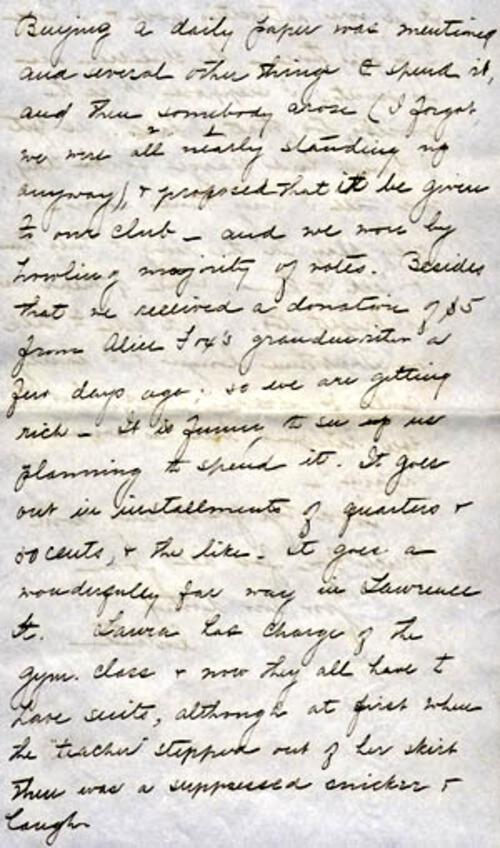 Buying a daily paper was mentioned
and several other things to spend it,
and then somebody arose (I forgot,
we were all nearly standing
anyway), & proposed that it be given
to our club – and we won by
howling majority of votes. Besides
that we received a donation of $5
from Alice Fox's a
few days ago; so we are getting
rich – It is funny to see us
planning to spend it. It goes
out in installments of quarters &
50 cents, & the like. It goes a
wonderfully far way in Lawrence
St. Laura has charge of the
gym. class & now they all have to
have suits, although at first when
the "teacher" stepped out of her skirt
there was a suppressed snicker &
laugh